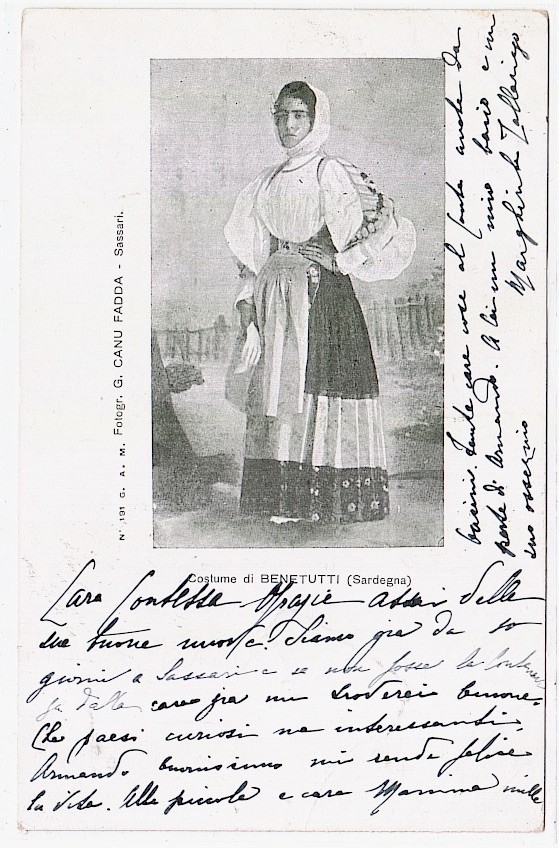 N° 191 G. A. M. Fotogr. G. CANU FADDA - Sassari.
Costume di BENETUTTI (Sardegna)
Cara Contessa Grazie assai delle
sue buone nuove. Siamo già da 10
giorni a Sassari e se non fosse la lontanan
za dalle care mi troverei benone.
Che paesi curiosi ma interessanti.
Armando buonissimo mi rende felice
la vita. Alla piccola e cara Mammà mille
bacini. Tante care cose al Conte anche da
parte di Armando. A Lei un mio bacio e un
suo ossequio
Margherita